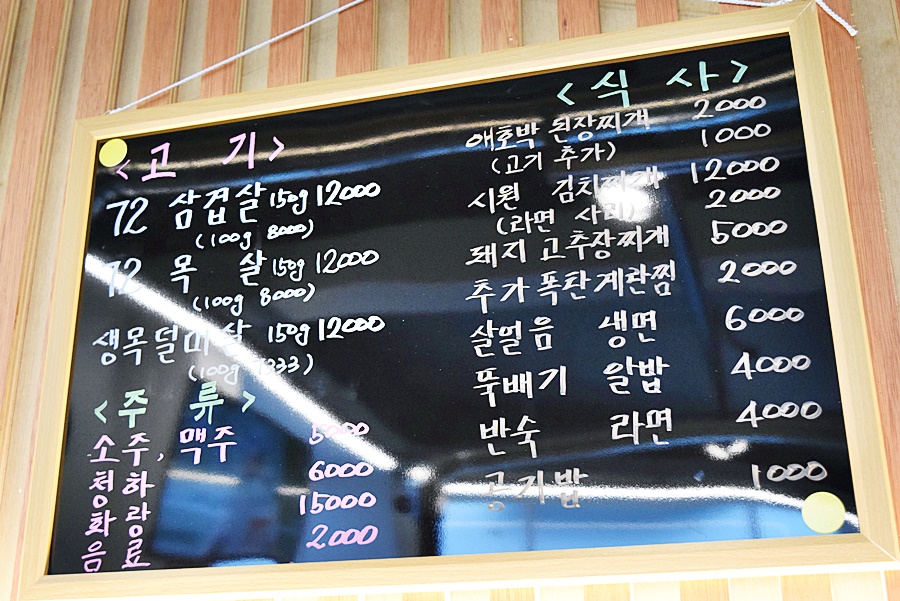 <고 기>
72 삼겹살 150g 12000
(100g 8000)
72 목 살 150g 12000
(100g 8000)
생목덜미살 150g 12000
(100g 333)
<주 류>
소주, 맥주 5000
청하 6000
화랑 15000
음료 2000
<식 사>
애호박 된장찌개 2000
(고기 추가) 1000
시원 김치찌개 12000
(라면 사리) 2000
돼지 고추장찌개 5000
추가 폭탄계란찜 2000
살얼음 냉면 6000
뚝배기 알밥 4000
반숙 라면 4000
공기밥 1000